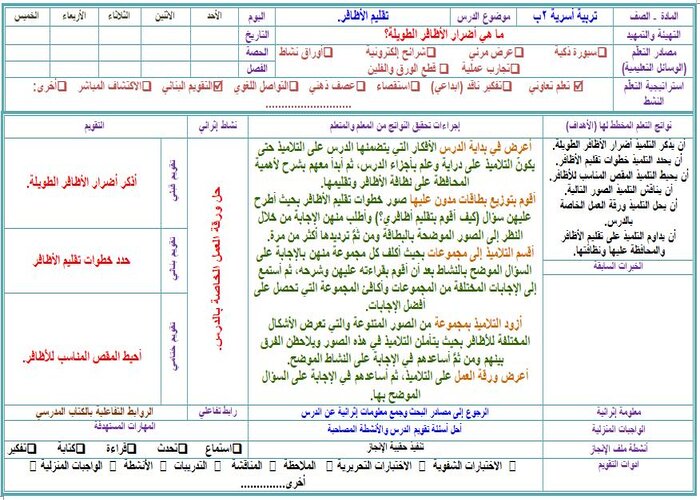 المادة - الصف
تربية أسرية ٢ب
موضوع الدرس
تقليم الأظافر.
اليوم
الأحد
الاثنين
الثلاثاء
الأربعاء
الخميس
التهيئة والتمهيد
ما هي أضرار الأظافر الطويلة؟
التاريخ
مصادر التعلم
(الوسائل التعليمية)
سبورة ذكية
عرض مرئي
شرائح إلكترونية
أوراق نشاط
تجارب عملية
قطع الورق والفلين
الحصة
الفصل
استراتيجية التعلم
النشط
تعلم تعاوني
تفكير ناقد (ابداعي)
استقصاء
عصف ذهني
التواصل اللغوي
التقويم البنائي
الاكتشاف المباشر
أخرى:
............................
نواتج التعلم المخطط لها (الأهداف)
إجراءات تحقيق النواتج من المعلم والمتعلم
نشاط إثرائي
التقويم
أن يذكر التلميذ أضرار الأظافر الطويلة.
أن يحدد التلميذ خطوات تقليم الأظافر.
أن يحيط التلميذ المقص المناسب للأظافر.
أن يناقش التلميذ الصور التالية.
أن يحل التلميذ ورقة العمل الخاصة
بالدرس.
أن يداوم التلميذ على تقليم الأظافر
والمحافظة عليها ونظافتها.
الخبرات السابقة
أعرض في بداية الدرس الأفكار التي يتضمنها الدرس على التلاميذ حتى
يكون التلاميذ على دراية وعلم بأجزاء الدرس، ثم أبدأ معهم بشرح لأهمية
المحافظة على نظافة الأظافر وتقليمها.
أقوم بتوزيع بطاقات مدون عليها صور خطوات تقليم الأظافر بحيث أطرح
عليهن سؤال (كيف أقوم بتقليم أظافري؟) وأطلب منهن الإجابة من خلال
النظر إلى الصور الموضحة بالبطاقة ومن ثمَّ ترديدها أكثر من مرة.
أقسم التلاميذ إلى مجموعات بحيث أكلف كل مجموعة منهن بالإجابة على
السؤال الموضح بالنشاط بعد أن أقوم بقراءته عليهن وشرحه، ثم أستمع
إلى الإجابات المختلفة من المجموعات وأكافئ المجموعة التي تحصل على
أفضل الإجابات.
أزود التلاميذ بمجموعة من الصور المتنوعة والتي تعرض الأشكال
المختلفة للأظافر بحيث يتأملن التلاميذ في هذه الصور ويلاحظن الفرق
بينهم ومن ثمَّ أساعدهم في الإجابة على النشاط الموضح.
أعرض ورقة العمل على التلاميذ، ثم أساعدهم في الإجابة على السؤال
الموضح بها.
حل ورقة العمل الخاصة بالدرس.
تقويم قبلي
أذكر أضرار الأظافر الطويلة.
تقويم بنائي
حدد خطوات تقليم الأظافر
تقويم ختامي
أحيط المقص المناسب للأظافر.
معلومة إثرائية
الرجوع إلى مصادر البحث وجمع معلومات إثرائية عن الدرس
رابط تفاعلي
الروابط التفاعلية بالكتاب المدرسي
الواجبات المنزلية
أحل أسئلة تقويم الدرس والأنشطة المصاحبة
المهارات المستهدفة
أنشطة ملف الإنجاز
تنفيذ حقيبة الإنجاز
استماع
تحدث
قراءة
كتابة
تفكير
ادوات التقويم
الاختبارات الشفوية
الاختبارات التحريرية
الملاحظة
المناقشة
التدريبات
الأنشطة
الواجبات المنزلية
أخرى...............